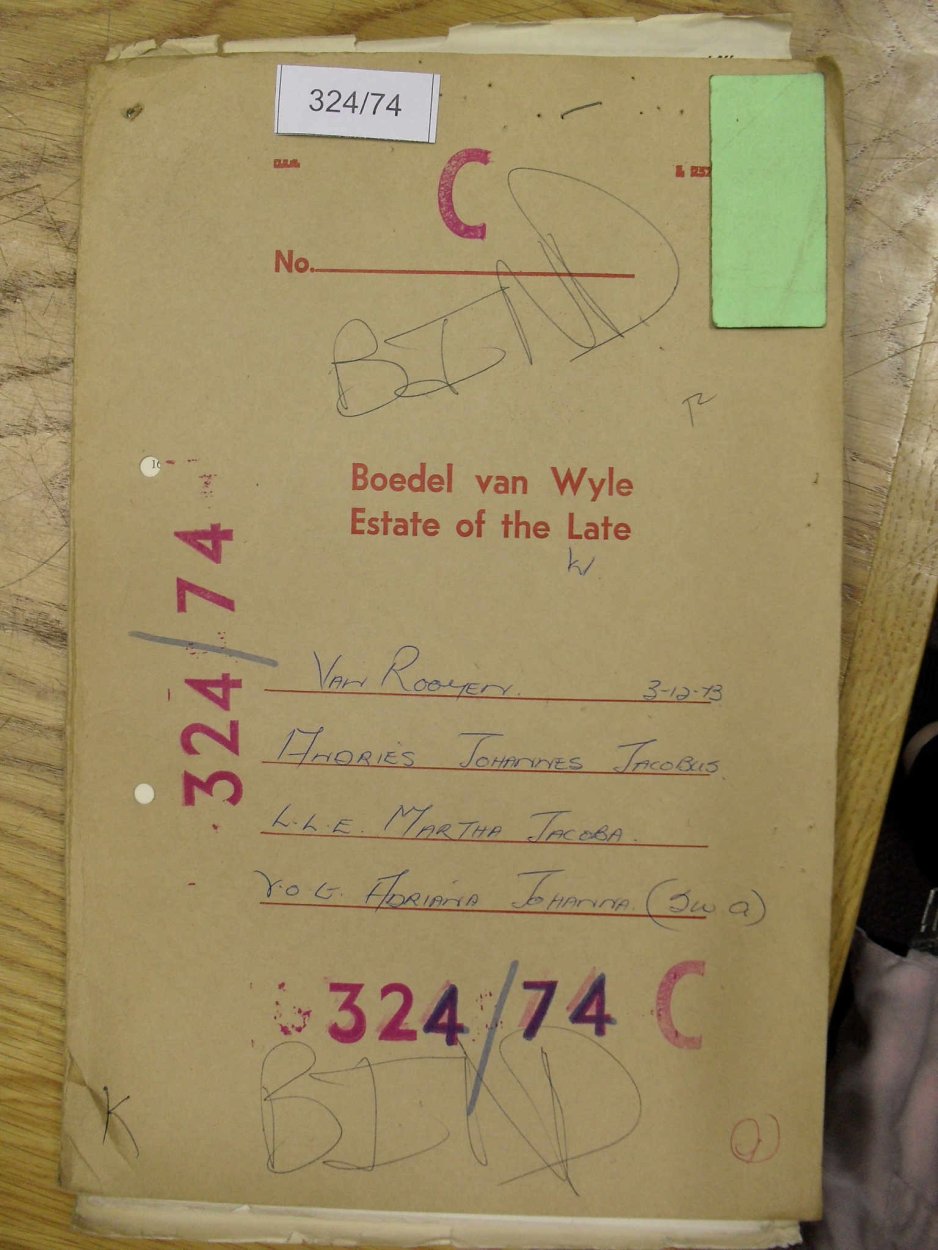 324/74
C
No.
BIND
Boedel van Wyle
Estate of the Late
W
324/74
VAN ROOYEN. 3-12-73
ANDRIES JOHANNES JACOBUS.
L.L.E. MARTHA JACOBA.
V.O.E. ADRIANA JOHANNA. (SW a)
324/74 C
BIND
K